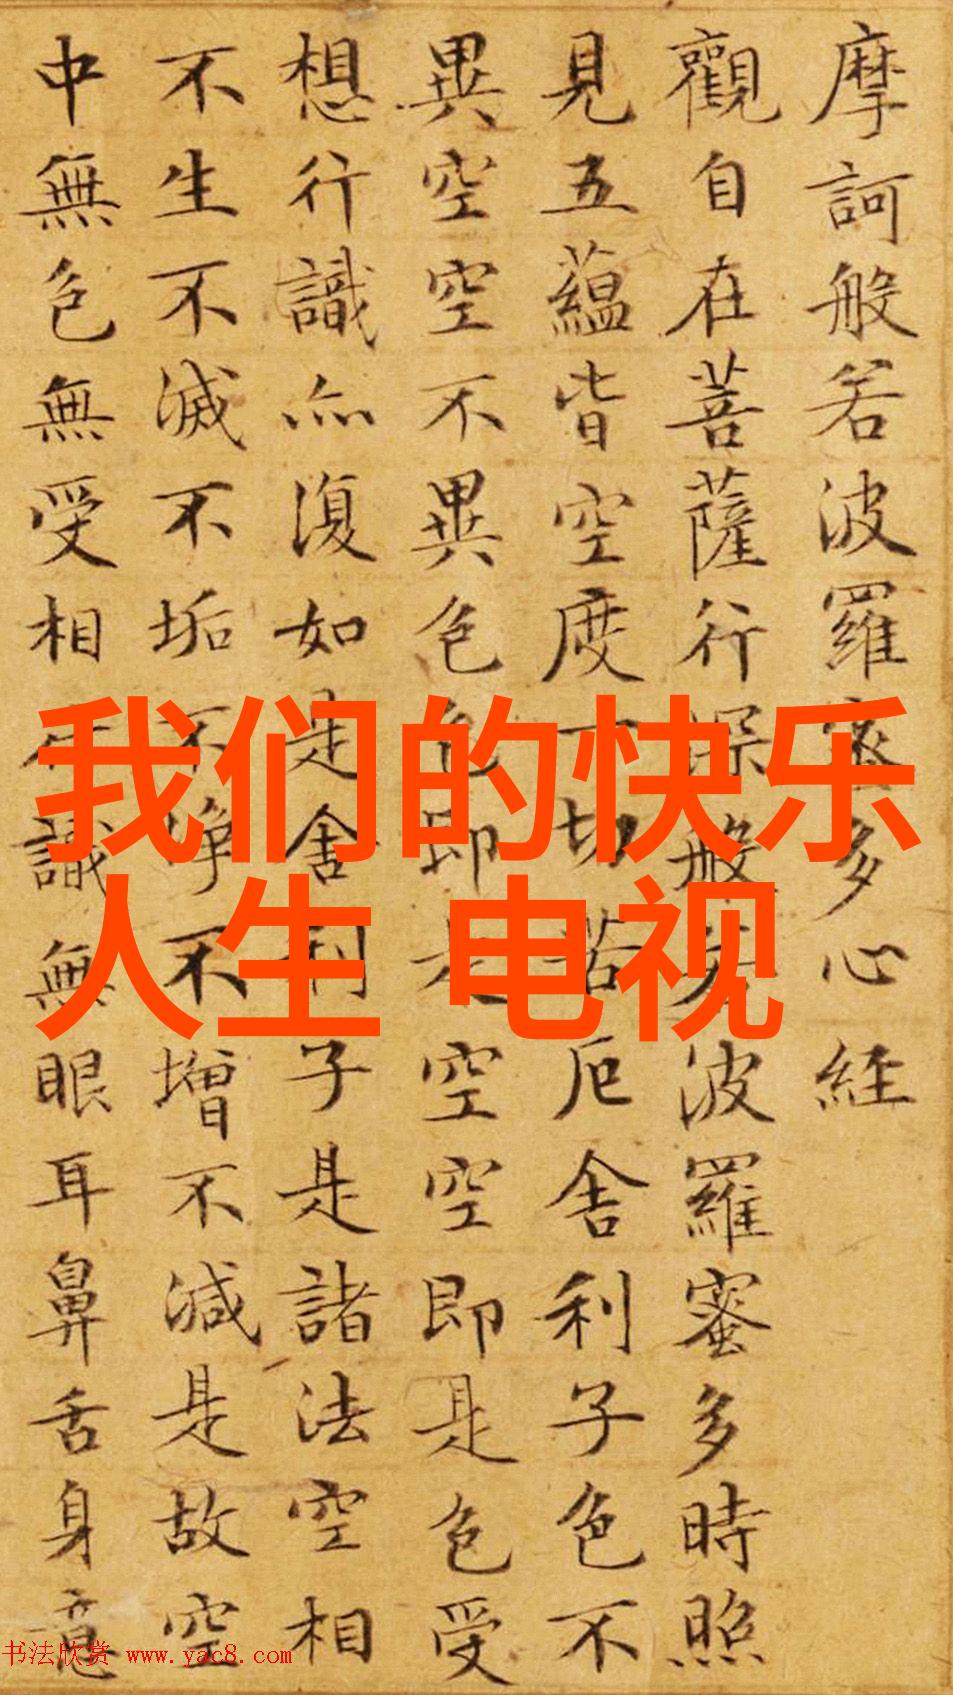 摩訶般若波羅蜜多心經
觀自在菩薩行深般若波羅蜜多時照
見五蘊皆空度一切苦厄舍利子色不
異空空不異色色即是空空即是色受
想行識亦復如是舍利子是諸法空相
不生不滅不垢不淨不增不減是故空
中無色無受相行識無眼耳鼻舌身意
我们的快乐
人生 电视
书法欣赏 www.yac8.com